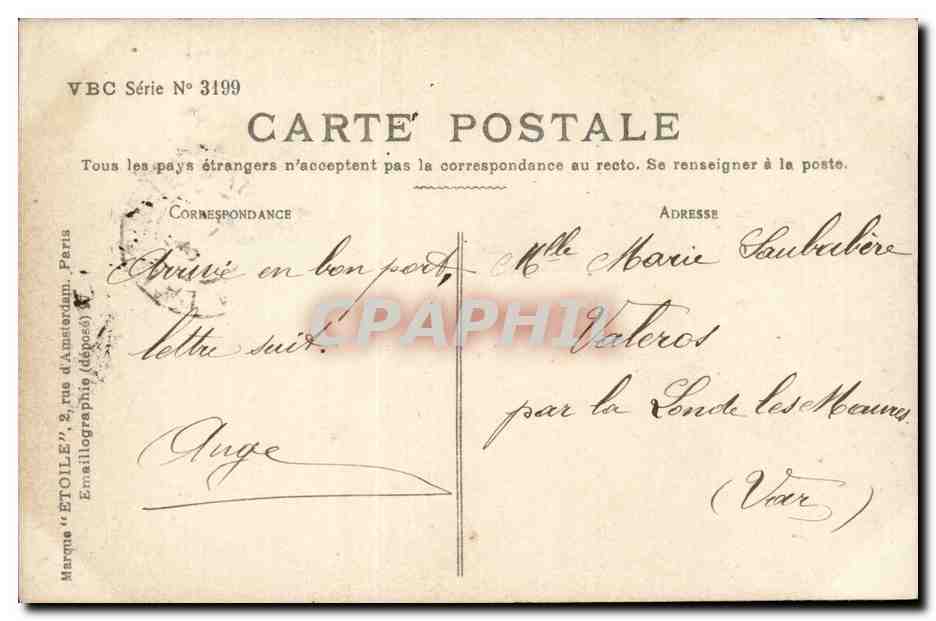 VBC Série Nº 3199
CARTE POSTALE
Tous les pays étrangers n'acceptent pas la correspondance au recto. Se renseigner à la poste.
CORRESPONDANCE
Arrivé en bon port,
lettre suit.
Ange
ADRESSE
Mlle Marie Saububère
Valeros
par la Londe les Maures
(Var)
Marque "ETOILE", 2, rue d'Amsterdam. Paris
Emaillographie (déposé)
CPAPHIL